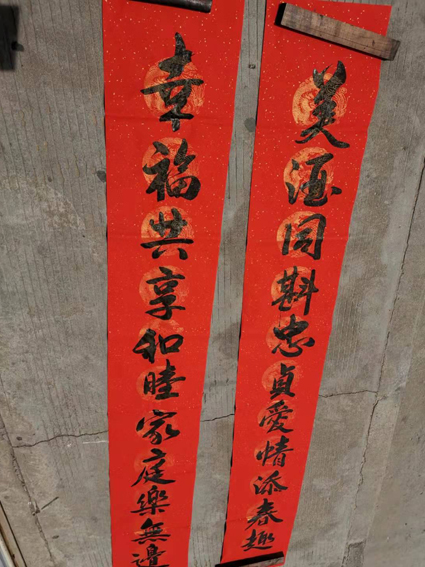 美酒同斟忠貞愛情添春趣
幸福共享和睦家庭樂無邊